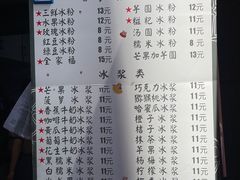 ★三鲜冰粉 13元 芋圆冰粉 12元
★水果冰粉 12元 ★枇杷冰粉 12元
★玫瑰冰粉 8元 汤圆冰粉 12元
红豆冰粉 8元 糯米冰粉 12元
绿豆冰粉 8元 芒果加芋圆 13元
★全家福 15元
冰浆类
★芒果冰浆 11元 巧克力冰浆 11元
菠萝冰浆 11元 猕猴桃冰浆 11元
★香蕉牛奶冰浆 11元 哈蜜瓜冰浆 11元
★咖啡牛奶冰浆 11元 橙子冰浆 11元
★黄瓜牛奶冰浆 11元 橘子冰浆 11元
★葡萄牛奶冰浆 11元 抹茶冰浆 11元
★花生牛奶冰浆 11元 苹果冰浆 11元
★黑糯米冰浆 11元 柠檬冰浆 11元
白糯米冰浆 11元 杨梅冰浆 11元